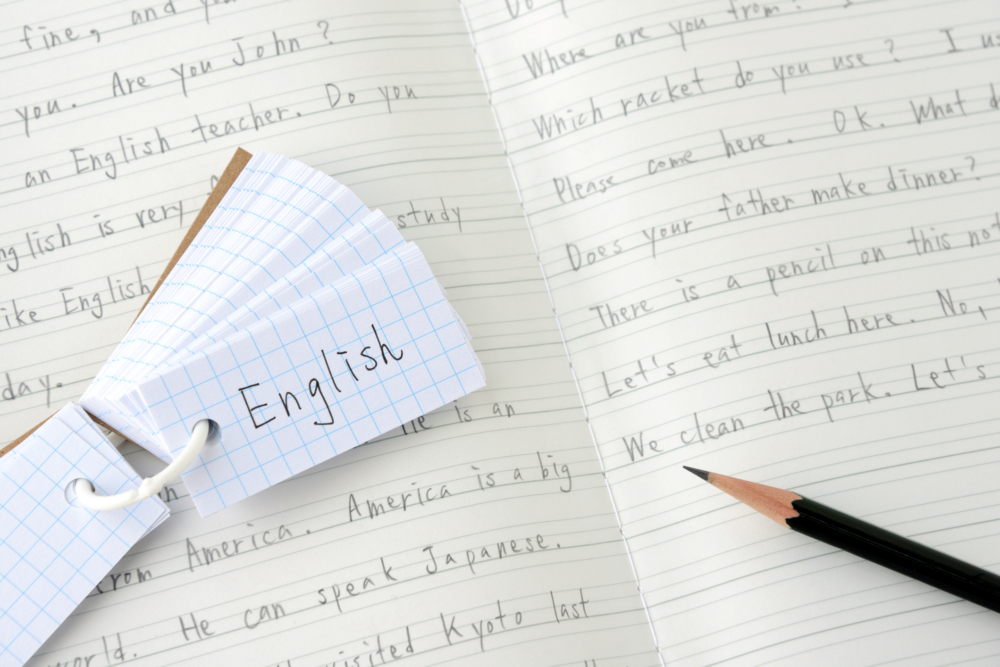 fine, and
you. Are you John?
an English teacher. Do you
English is very study
like English
day.
English
He is an
from America. America is a big
world. He can speak Japanese.
visited Kyoto last
Do
Where are you from?
Which racket do you use? I
Please come here. OK. What
Does your father make dinner?
There is a pencil on this
Let's eat lunch here. No,
We clean the park. Let's